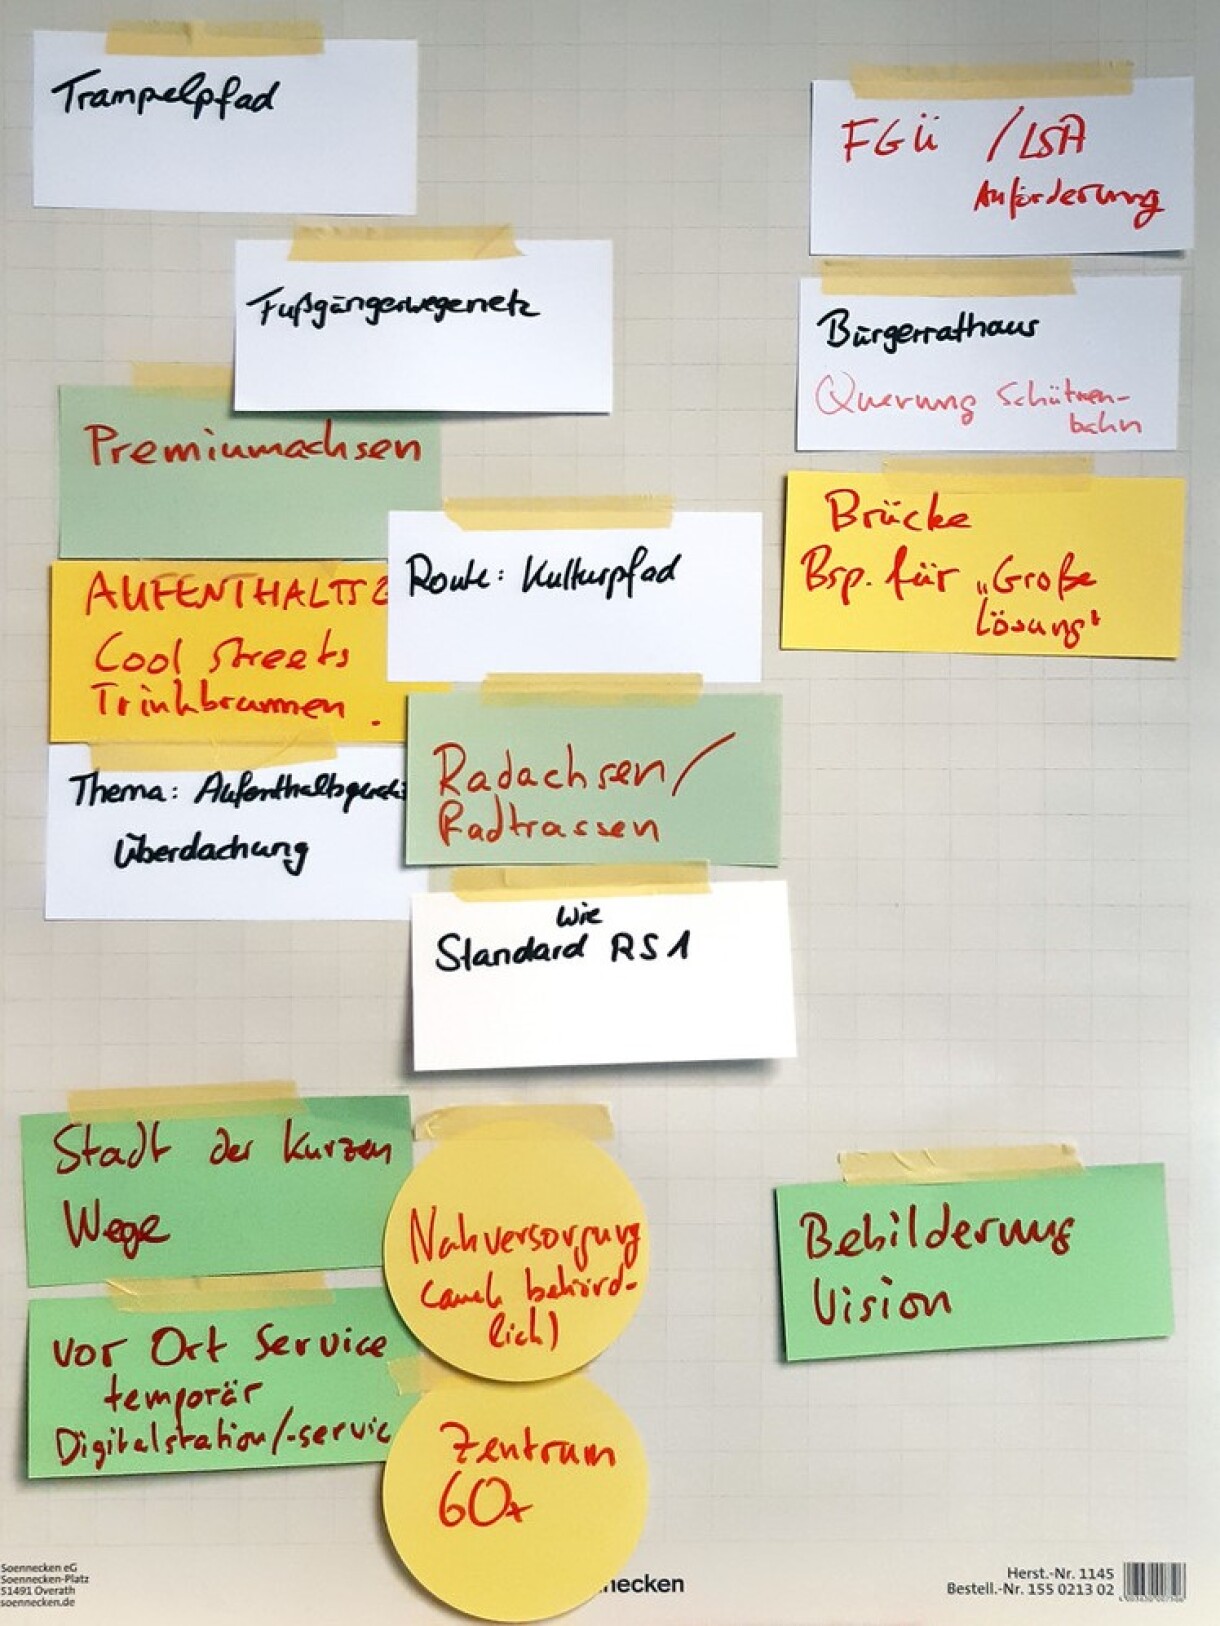 Trampelpfad
Fußgängerwegenetz
Premiumachsen
AUFENTHALTS
Cool streets
Trinkbrunnen.
Thema:
Überdachung
Route: Kulturpfad
Radachsen/
Radtrassen
wie
Standard RS1
FGÜ / LSA
Anforderung
Bürgerrathaus
Querung Schützen-
bahn
Brücke
Bsp. für „Große
Lösung"
Stadt der kurzen
Wege
vor Ort Service
temporär
Digitalstation/-servic
Nahversorgung
(auch behörd-
lich)
Zentrum
60+
Bebilderung
Vision
Soennecken eG
Soennecken-Platz
51491 Overath
soennecken.de
necken
Herst.-Nr. 1145
Bestell.-Nr. 155 0213 02